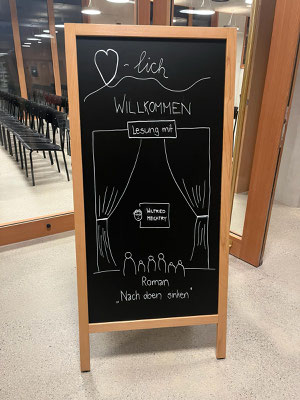 -lich
WILLKOMMEN
Lesung mit
WILFRIED
MEICHTRY
Roman
„Nach oben sinken"